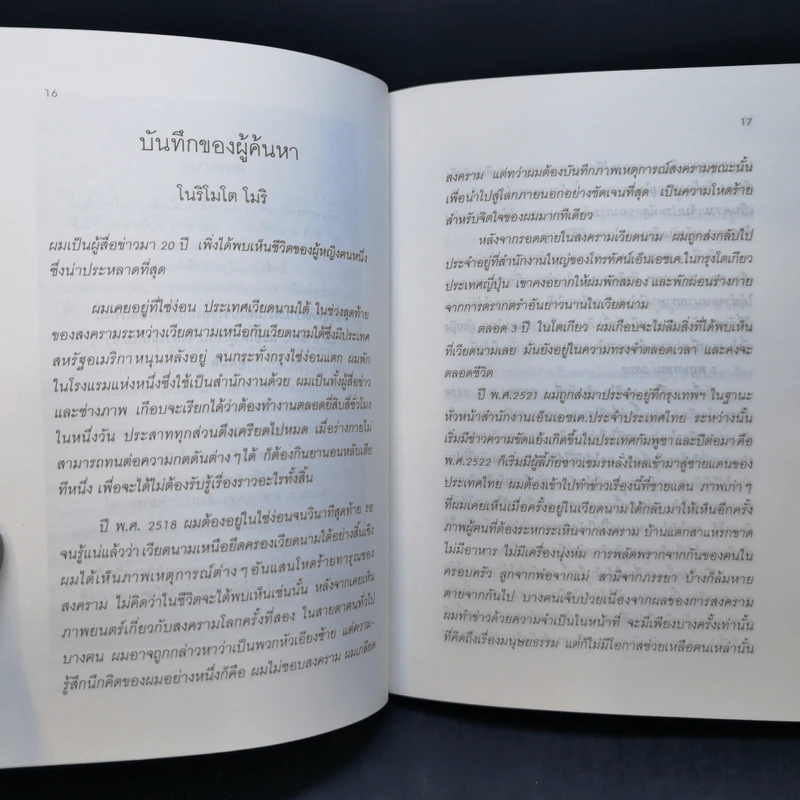 16
บันทึกของผู้ค้นหา
โนริโมโต โมริ
ผมเป็นผู้สื่อข่าวมา 20 ปี เพิ่งได้พบเห็นชีวิตของผู้หญิงคนหนึ่ง
ซึ่งน่าประหลาดที่สุด
ผมเคยอยู่ที่ไซ่ง่อน ประเทศเวียดนามใต้ ในช่วงสุดท้าย
ของสงครามระหว่างเวียดนามเหนือกับเวียดนามใต้ซึ่งมีประเทศ
สหรัฐอเมริกาหนุนหลังอยู่ จนกระทั่งกรุงไซ่ง่อนแตก ผมพัก
ในโรงแรมแห่งหนึ่งซึ่งใช้เป็นสำนักงานด้วย ผมเป็นทั้งผู้สื่อข่าว
และช่างภาพ เกือบจะเรียกได้ว่าต้องทำงานตลอดยี่สิบสี่ชั่วโมง
ในหนึ่งวัน ประสาททุกส่วนตึงเครียดไปหมด เมื่อร่างกายไม่
สามารถทนต่อความกดดันต่างๆได้ ก็ต้องกินยานอนหลับเสีย
ทีหนึ่ง เพื่อจะได้ไม่ต้องรับรู้เรื่องราวอะไรทั้งสิ้น
ปี พ.ศ. 2518 ผมต้องอยู่ในไซ่ง่อนจนวินาทีสุดท้าย รอ
จนรู้แน่แล้วว่าเวียดนามเหนือยึดครองเวียดนามใต้อย่างสิ้นเชิง
ผมได้เห็นภาพเหตุการณ์ต่างๆอันแสนโหดร้ายทารุณของ
สงคราม ไม่คิดว่าในชีวิตจะได้พบเห็นเช่นนั้น หลังจากเคยเห็น
ภาพยนตร์เกี่ยวกับสงครามโลกครั้งที่สอง ในสายตาคนทั่วไป
บางคน ผมอาจถูกกล่าวหาว่าเป็นพวกหัวเอียงซ้าย แต่ความ-
รู้สึกนึกคิดของผมอย่างหนึ่งก็คือ ผมไม่ชอบสงคราม ผมเกลียด
17
สงคราม แต่ทว่าผมต้องบันทึกภาพเหตุการณ์สงครามขณะนั้น
เพื่อนำไปสู่โลกภายนอกอย่างชัดเจนที่สุด เป็นความโหดร้าย
สำหรับจิตใจของผมมากทีเดียว
หลังจากรอดตายในสงครามเวียดนาม ผมถูกส่งกลับไป
ประจำอยู่ที่สำนักงานใหญ่ของโทรทัศน์เอ็นเอชเค.ในกรุงโตเกียว
ประเทศญี่ปุ่น เขาคงอยากให้ผมพักสมอง และพักผ่อนร่างกาย
จากการตรากตรำอันยาวนานในเวียดนาม
ตลอด 3 ปี ในโตเกียว ผมเกือบจะไม่ลืมสิ่งที่ได้พบเห็น
ที่เวียดนามเลย มันยังอยู่ในความทรงจำตลอดเวลา และคงจะ
ตลอดชีวิต
ปี พ.ศ.2521 ผมถูกส่งมาประจำอยู่ที่กรุงเทพฯ ในฐานะ
หัวหน้าสำนักงานเอ็นเอชเค.ประจำประเทศไทย ระหว่างนั้น
เริ่มมีข่าวความขัดแย้งเกิดขึ้นในประเทศกัมพูชา และปีต่อมา คือ
พ.ศ.2522 ก็เริ่มมีผู้ลี้ภัยชาวเขมรหลั่งไหลเข้ามาสู่ชายแดนของ
ประเทศไทย ผมต้องเข้าไปทำข่าวเรื่องนี้ที่ชายแดน ภาพเก่าๆ
ที่ผมเคยเห็นเมื่อครั้งอยู่ในเวียดนามได้กลับมาให้เห็นอีกครั้ง
ภาพผู้คนที่ต้องระหกระเหินจากสงคราม บ้านแตกสาแหรกขาด
ไม่มีอาหาร ไม่มีเครื่องนุ่งห่ม การพลัดพรากจากกันของคนใน
ครอบครัว ลูกจากพ่อจากแม่ สามีจากภรรยา บ้างก็ล้มหาย
ตายจากกันไป บางคนเจ็บป่วยเนื่องจากผลของการสงคราม
ผมทำข่าวด้วยความจำเป็นในหน้าที่ จะมีเพียงบางครั้งเท่านั้น
ที่คิดถึงเรื่องมนุษยธรรม แต่ก็ไม่มีโอกาสช่วยเหลือคนเหล่านั้น